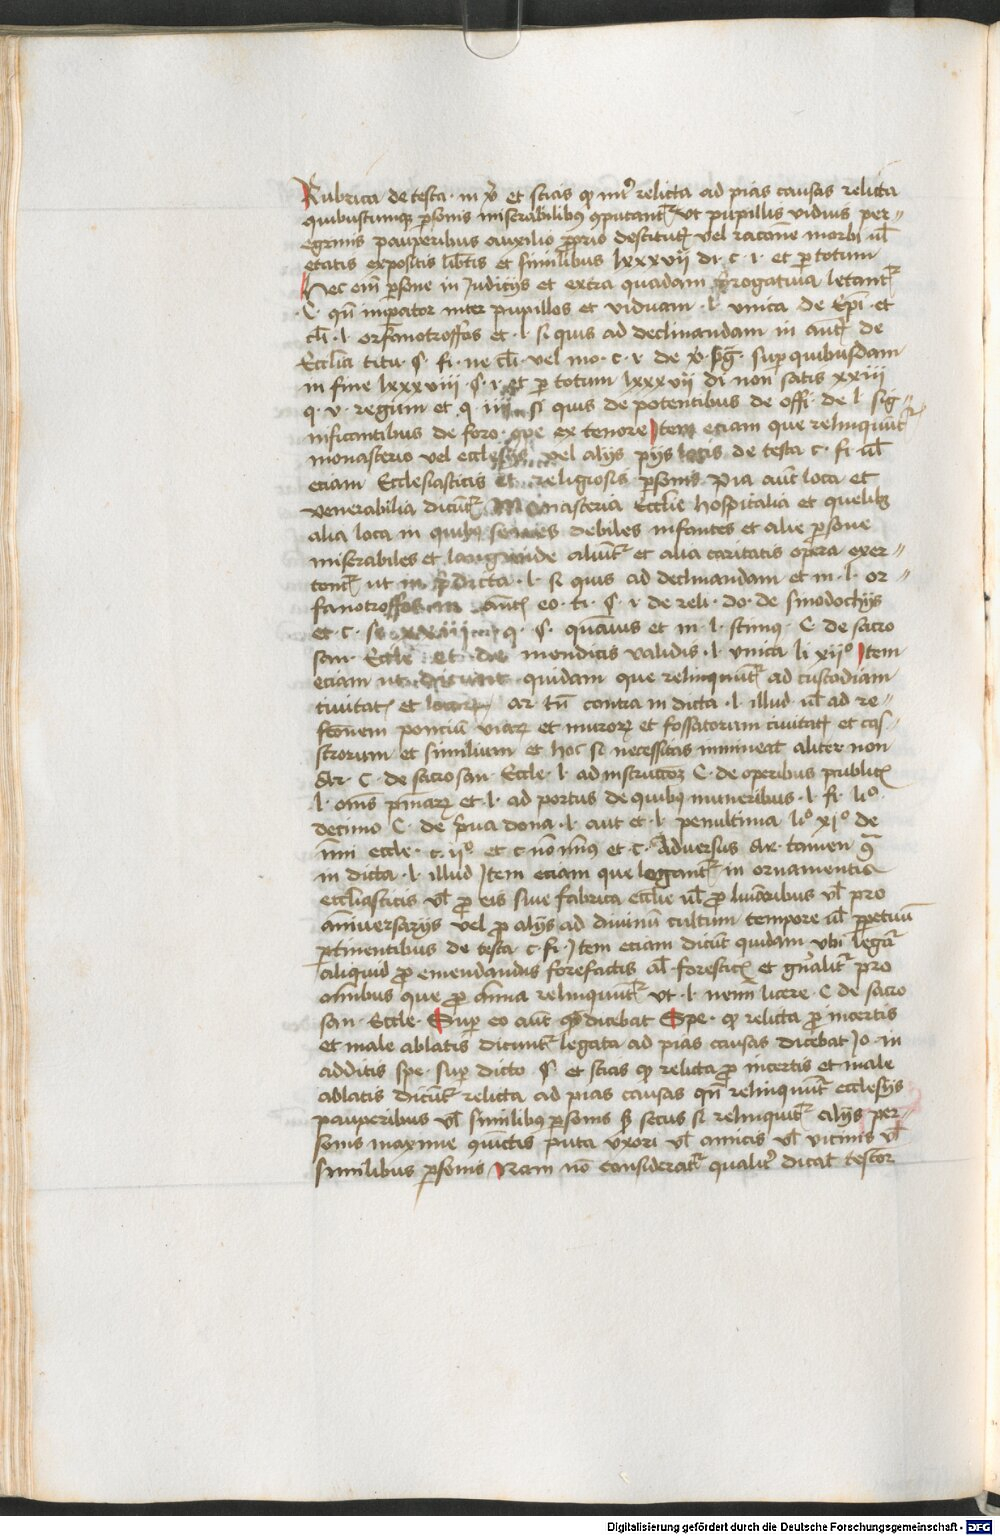 Rubrica de testa · in et scias qͥ int̾ relicta ad pias causas relicta
quibuscumqꝫ ꝑsonis miserabilibus ꝯputant᷑ ut pupillis viduis per-
egrinis pauperibus auxilio ꝓprio destitutis vel racione morbi ul̄
etatis expositis lib̄tis et similibus lxxxvij di · c · i · et ꝑ totum
Hec em̄ ꝑsone in Judicijs et extra quadam p̄rogatiua letant᷑
C · qn̄ imperator inter pupillos et viduam · l · vnica de Epī · et
cl̄i · l · orfanotroffos et · l · si quis ad declinandam in aut̄ de
Ecclīa titu · § · fi · ne cl̄i · vel mo · c · i · de suꝑ quibusdam
in fine lxxxviii · § · i · et ꝑ totum lxxxvij di non satis xxiii
q · v · regium et · q · iii si quis de potentibus de offi · de l · sig-
nificantibus de foro · ꝯpe ex tenore Item eciam que relinquunt᷑
monasterio vel ecclesijs vel alijs pijs locis de testa c · fi · ul̄
eciam Ecclesiasticis et religiosis ꝑsonis Pia aut̄ loca et
venerabilia dicunt᷑ Monasteria Ecclīe hospitalia et quelibꝫ
alia loca in quibus senes debiles infantes et alie ꝑsone
miserabiles et languide alunt᷑ et alia caritatis opera exer-
cent᷑ ut in p̄dicta · l · si quis ad declinandam et in · l · or-
fanotroffos in aut̄ eo · ti · § · i · de reli · do · de sinodochijs
et · c · si xxiii q · § · quāuis et in · l · scimus · C · de sacro
san · Eccle et de mendicis validis · l · vnica li xii° Item
eciam ut dicunt quidam que relinquunt᷑ ad custodiam
ciuitatis et locorum ar tn̄ contra in dicta · l · illud ul̄ ad re-
fcōem ponciū viarū et murorū et fossatorum ciuitatis et cas-
trorum et similium et hoc si necessitas immineat aliter non
Ar · C · de sacrosan · Eccle · l · ad instructōꝫ C · de operibus publicis
l · oms et · l · ad portus de quibus muneribus · l · fi · li°
decimo C · de p̄ua dona · l · aut et · l · penultima li° xi° de
īmi eccle · c · ij° et c non minus et · c · Aduersus Ar · tamen
in dicta · l · illud Item eciam que legant᷑ in ornamentis
ecclīasticis ul̄ ꝓ eis siue fabrica ecclīe ul̄ ꝓ luīaribus ul̄ pro
anniuersarijs vel ꝓ alijs ad diuinū cultum tempore ul̄ ꝑpetuū
ꝑtinentibus de testa · c · fi · Item eciam dicūt quidam ubi legat᷑
aliquid ꝓ emendandis forefactis al̄ · foresticis et gn̄alit̾ pro
omnibus que ꝓ anima relinquunt᷑ ut · l · nemini licere · C de sacro
san · Eccle · Suꝑ eo aut̄ qd̄ dicebat Spe · qͥ relicta ꝓ incertis
et male ablatis dicunt᷑ legata ad pias causas dicebat Jo · in
additis spe · suꝑ dicto § et scias qͥ relicta ꝓ incertis et male
ablatis dicūt᷑ relicta ad pias causas qn̄ relinquūt᷑ ecclesijs
pauperibus ul̄ similibus ꝑsonis sꝫ secus si relinquūt᷑ alijs per-
sonis maxime ꝯiūctis puta vxori ul̄ amicis ul̄ vicinis ul̄
similibus ꝑsonis Nam nō considerat᷑ qualit̾ dicat testor
Digitalisierung gefördert durch die Deutsche Forschungsgemeinschaft - DFG